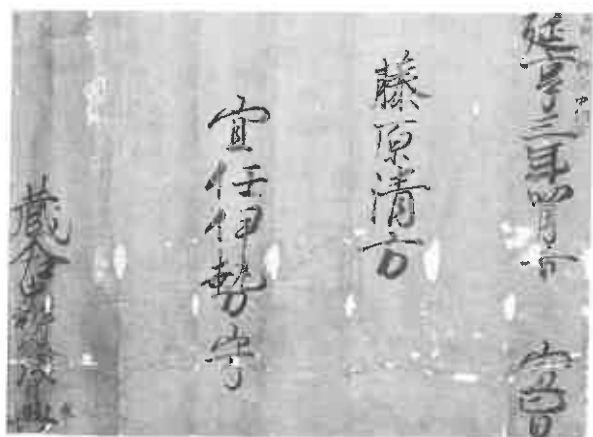 延享三年四月 宣旨
藤原清方
宜任伊勢守
蔵人